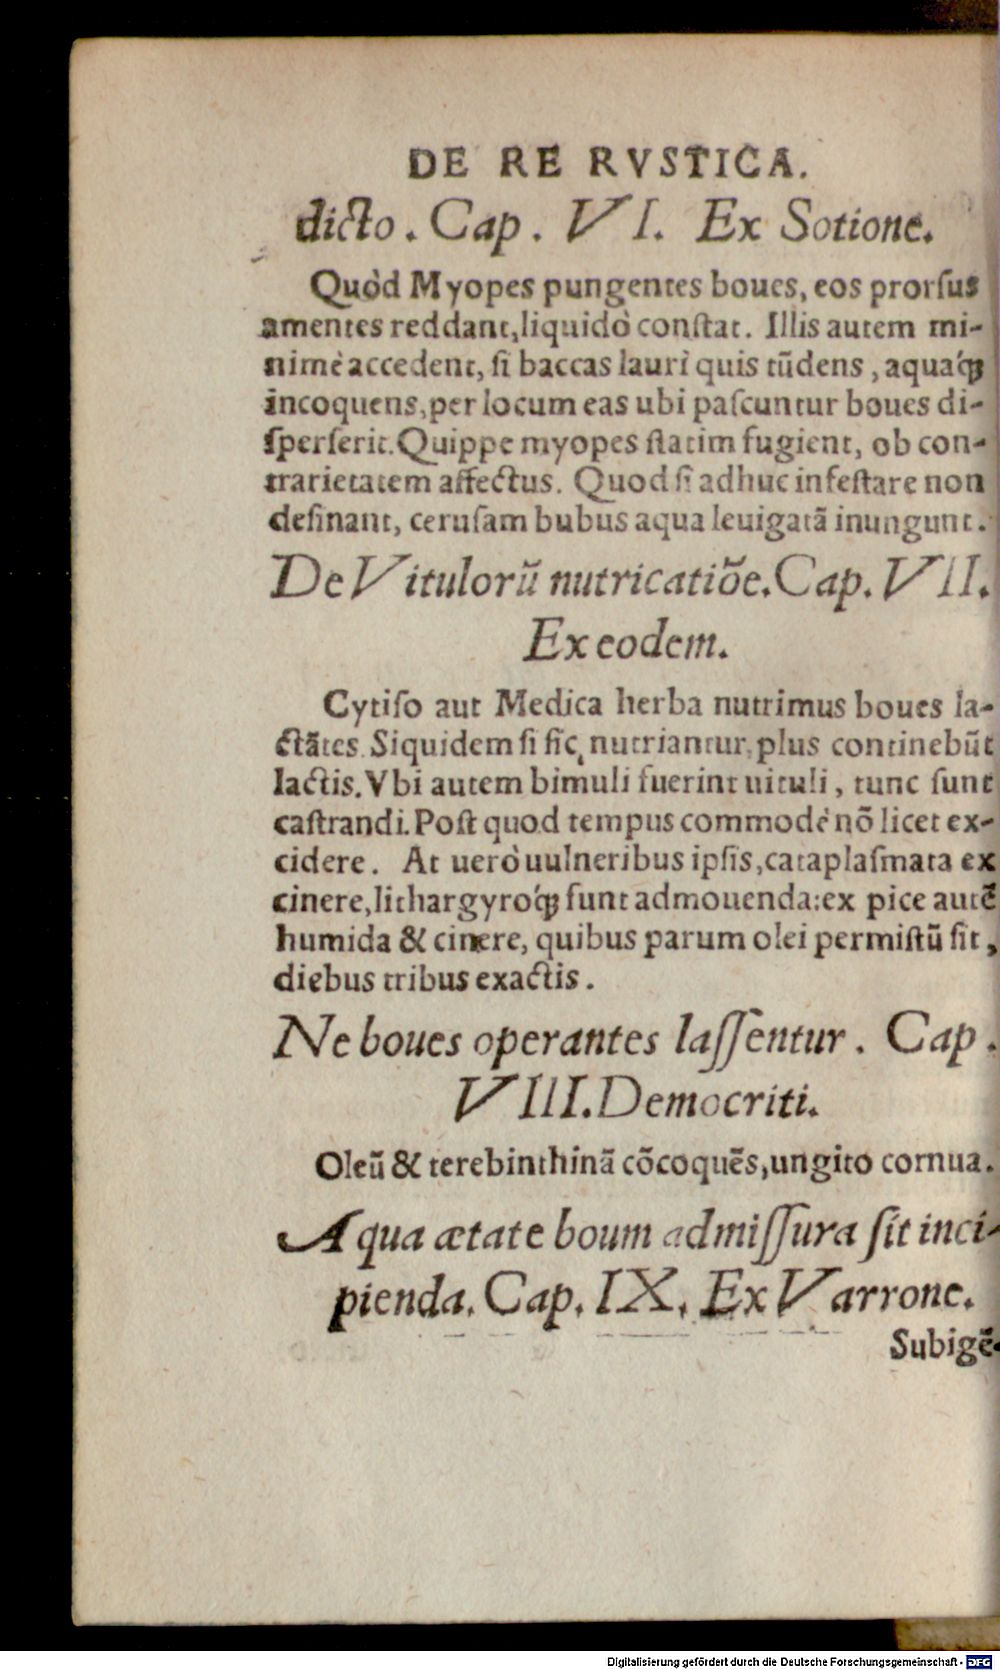 DE RE RVSTICA.
dicto. Cap. VI. Ex Sotione.
Quòd Myopes pungentes boues, eos prorſus
amentes reddant, liquidò conſtat. Illis autem mi-
nimè accedent, ſi baccas lauri quis tūdens, aquaq́ꝫ
incoquens, per locum eas ubi paſcuntur boues di-
ſperſerit. Quippe myopes ſtatim fugient, ob con-
trarietatem affectus. Quod ſi adhuc infeſtare non
deſinant, ceruſam bubus aqua leuigatā inungunt.
De Vitulorū nutricatiōe. Cap. VII.
Ex eodem.
Cytiſo aut Medica herba nutrimus boues la-
ctātes. Siquidem ſi ſic, nutriantur, plus continebūt
lactis. Vbi autem bimuli fuerint uituli, tunc ſunt
caſtrandi. Poſt quod tempus commodè nō licet ex-
cidere. At uerò uulneribus ipſis, cataplaſmata ex
cinere, lithargyroq́ꝫ ſunt admouenda: ex pice autē
humida & cinere, quibus parum olei permiſtū ſit,
diebus tribus exactis.
Ne boues operantes laſſentur. Cap.
VIII. Democriti.
Oleū & terebinthinā cōcoquēs, ungito cornua.
A qua ætate boum admiſſura ſit inci-
pienda. Cap. IX. Ex Varrone.
Subigē-
Digitalisierung gefördert durch die Deutsche Forschungsgemeinschaft - DFG